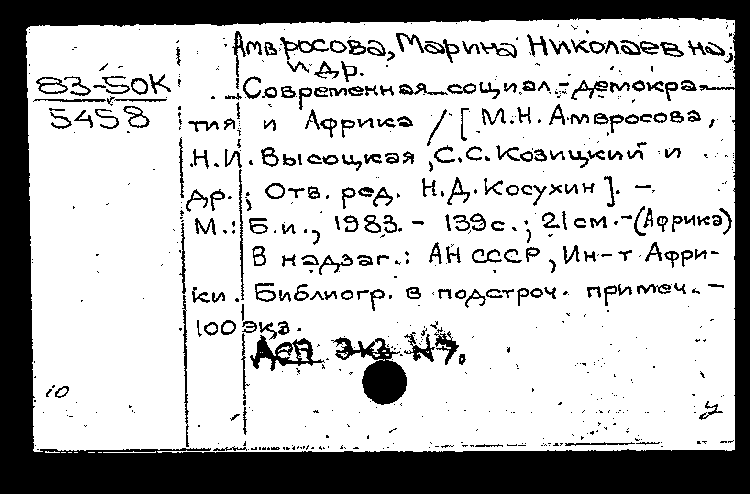 Амвросова, Марина Николаевна,
и др.
83-50К
5458
Современная социал-демокра-
тия и Африка / [М.Н. Амвросова,
Н.И. Высоцкая, С.С. Козицкий и
др.; Отв. ред. Н.Д. Косухин]. –
М.: Б.и., 1983. – 139с.; 21см. – (Африка)
В надзаг.: АН СССР, Ин-т Афри-
ки. Библиогр. в подстроч. примеч. –
100 экз.
Деп экз №7.
10
у